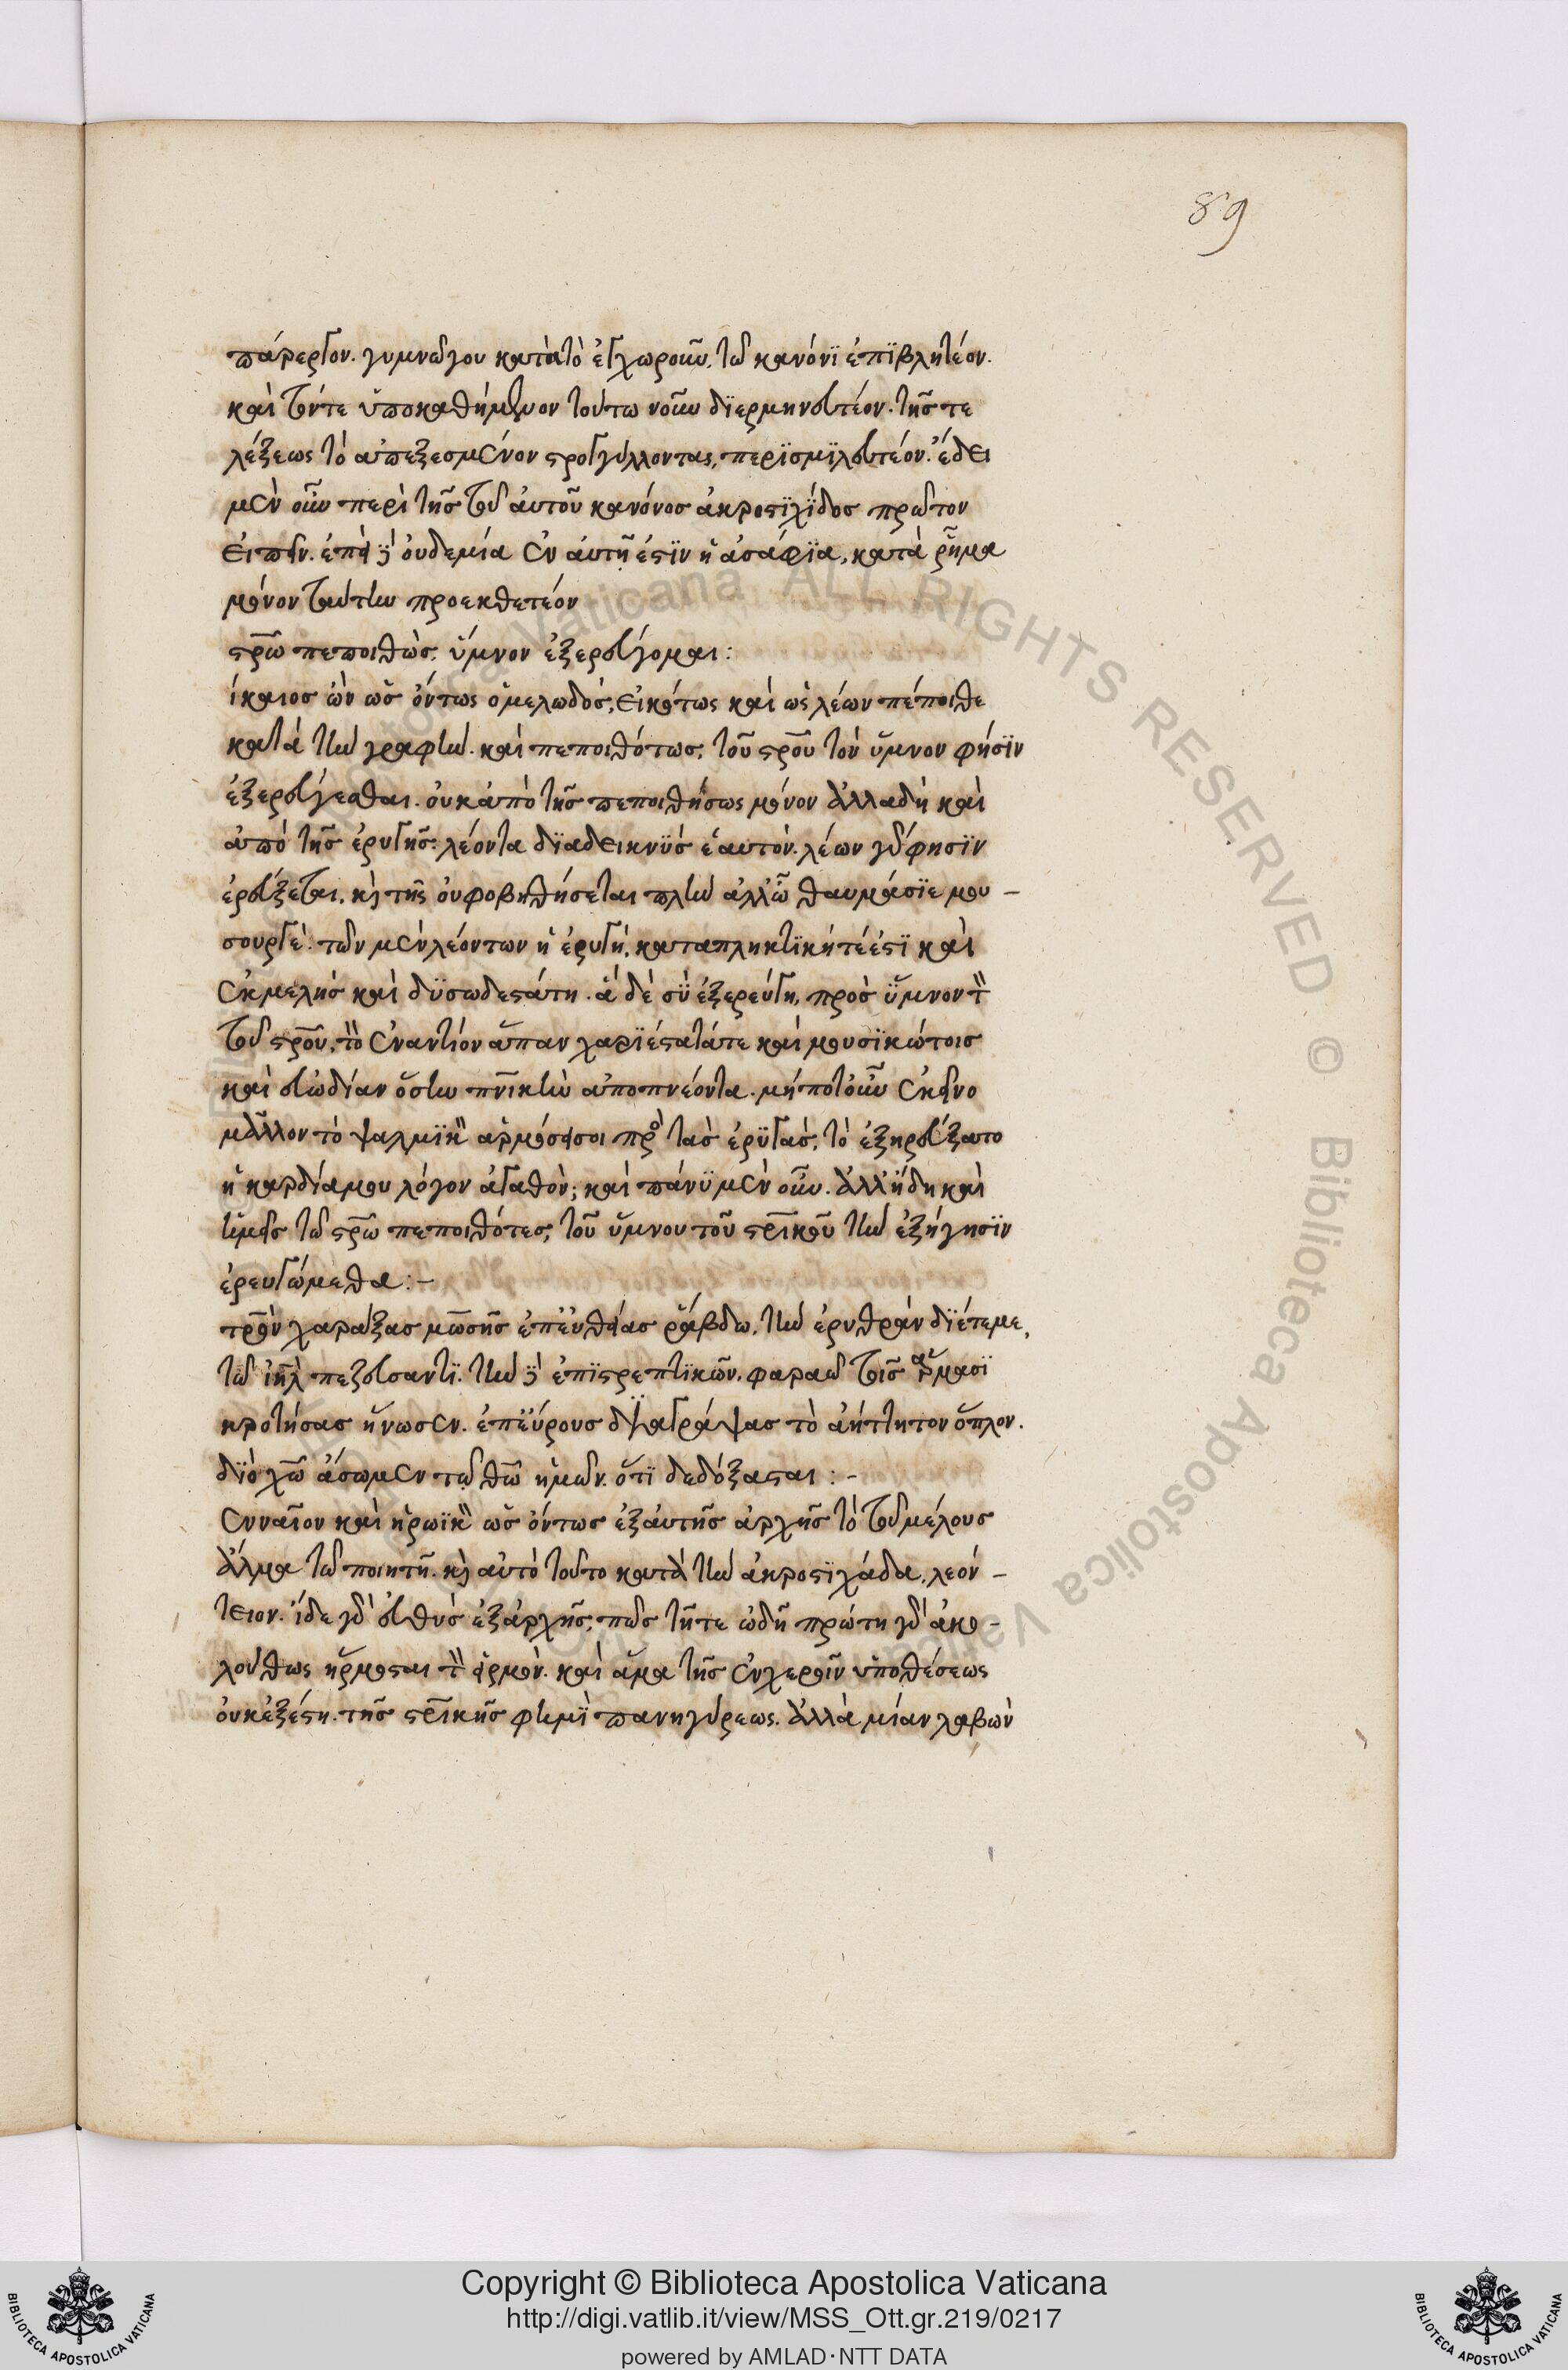 89
πάρεργον. γυμνῶς που κατὰ τὸ ἐγχωροῦν, τῶ κανόνϊ ἐπϊβλητέον.
καὶ τόν τε ὑποκαθήμενον τούτω νοῦν δϊερμηνευτέον. τῆς τε
λέξεως τὸ ἀπεξεσμένον στρογγύλλοντας, περϊσμϊλευτέον. ἔδει
μὲν οὖν περὶ τῆς τοῦ αὐτοῦ κανόνος ἀκροστϊχΐδος πρῶτον
εἰπεῖν. ἐπεὶ δὲ οὐδεμία ἐν αὐτῆ ἐστϊν ἡ ἀσάφϊα, κατὰ ῥῆμα
μόνον ταύτην προεκθετέον
στρῶ πεποιθὼς, ὕμνον ἐξερεύγομαι:
ίκαιος ὢν ὡς ὄντως ὁ μελωδός, εἰκότως καὶ ὡς λέων πέποιθε
κατὰ τὴν γραφὴν. καὶ πεποιθότως, τοῦ στροῦ τὸν ὕμνον φησϊν
ἐξερεύγεσθαι. οὐκ ἀπὸ τῆς πεποιθήσεως μόνον ἀλλαδὴ καὶ
ἀπὸ τῆς ἐρυγῆς. λέοντα δϊαδεικνϋς ἑαυτόν. λέων γὰρ φησϊν
ἐρεύξεται, καὶ τίς οὐ φοβηθήσεται πλὴν ἀλλ' ὦ θαυμάσϊε μου -
σουργὲ. τῶν μὲν λέοντων ἡ ἐρυγή, καταπληκτϊκή τέ ἐστϊ καὶ
ἐκμελὴς καὶ δϋσωδεστάτη. ἃ δὲ σϋ ἐξερεύγη, πρὸς ὕμνον τὸν
τοῦ στροῦ, τὸ ἐναντίον ἅπαν χαρϊέστατά τε καὶ μουσϊκώτοις
καὶ εὐωδίαν ὅστην πνικὴν ἀποπνέοντα. μήποτ' οὖν ἐκεῖνο
μᾶλλον τὸ ψαλμϊκὸν ἁρμόσει σοι πρὸς τὰς ἐρϋγάς, τὸ ἐξηρεύξατο
ἡ καρδία μου λόγον ἀγαθὸν; καὶ πάνϋ μὲν οὖν. ἀλλ' ἤδη καὶ
ἡμεῖς τῶ στρῶ πεποιθότες, τοῦ ὕμνου τοῦ στρικοῦ τὴν ἐξήγησϊν
ἐρευγώμεθα: -
στρὸν χαράξας μωσῆς ἐπ' εὐθείας ῥάβδω, τὴν ἐρυθρὰν δϊέτεμε,
τῶ ἰηλ πεζεύσαντϊ. τὴν δὲ ἐπϊστρεπτϊκῶς, φαραὼ τοῖς ἅρμασϊ
κροτήσας ἥνωσεν. ἐπ' εὔρους δϊαγράψας τὸ ἀήττητον ὅπλον.
δϊὸ χῶ ἄσωμεν τῶ θῶ ἡμῶν. ὅτϊ δεδόξασται: -
ενναῖον καὶ ἡρωϊκὸν ὡς ὄντως ἐξαὐτῆς ἀρχῆς τὸ τοῦ μέλους
ἅλμα τῶ ποιητῆ. καὶ αὐτὸ τοῦτο κατὰ τὴν ἀκροστϊχάδα, λεόν -
τειον. ἴδε γὰρ εὐθὺς ἐξἀρχῆς, πῶς τῆ τε ὠδῆ πρώτη γὰρ ἀκο -
λούθως ἥρμοσται τὸν εἱρμὸν. καὶ ἅμα τῆς ἐν χερσὶν ὑποθέσεως
οὐκ ἐξέστη. τῆς στρικῆς φημϊ πανηγύρεως. ἀλλὰ μίαν λαβὼν
Copyright © Biblioteca Apostolica Vaticana
http://digi.vatlib.it/view/MSS_Ott.gr.219/0217
powered by AMLAD·NTT DATA